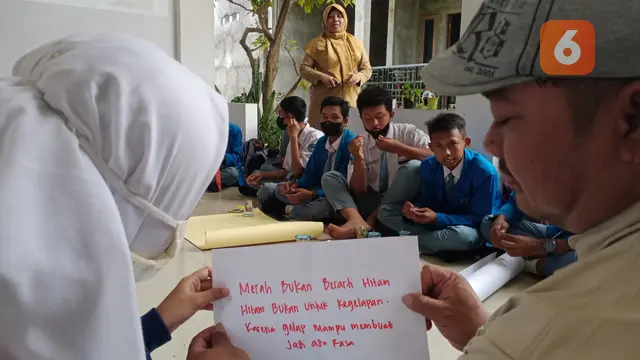 6
Merah Bukan Berarti Hitam
Hitam Bukan untuk Kegelapan.
Karena gelap mampu membuat
Jadi ada Rasa